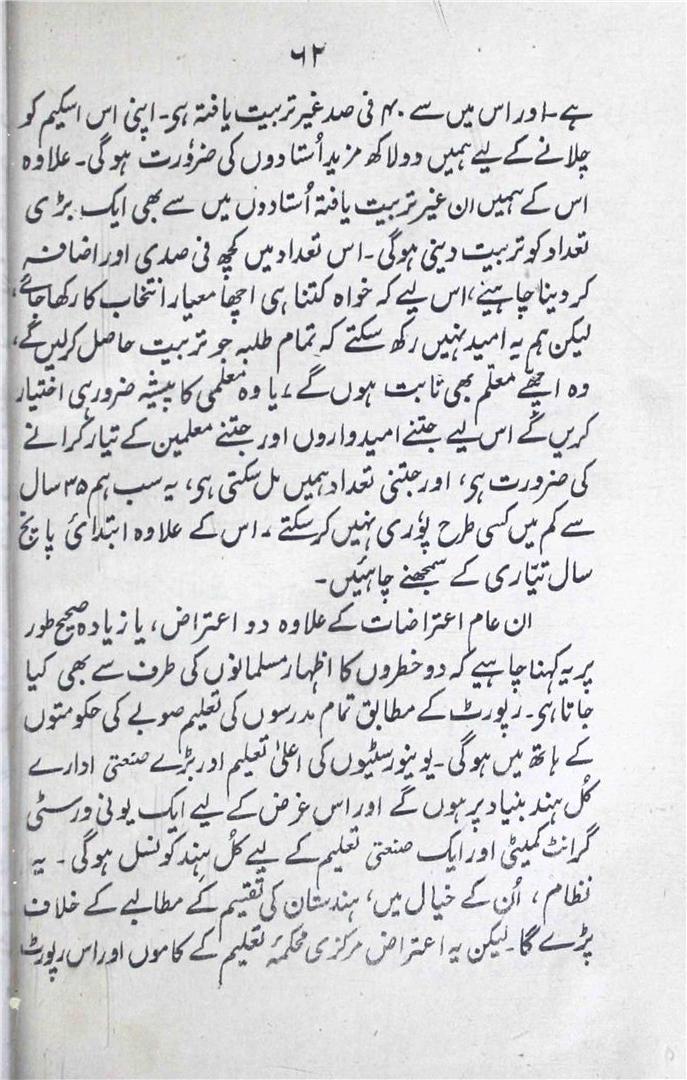 ۶۲
ہے۔ اور اس میں سے ۴۰ فی صد غیر تربیت یافتہ ہی۔ اپنی اس اسکیم کو
چلانے کے لیے ہمیں دولاکھ مزید اُستادوں کی ضرورت ہوگی۔ علاوہ
اس کے ہمیں ان غیر تربیت یافتہ اُستادوں میں سے بھی ایک بڑی
تعداد کو تربیت دینی ہوگی۔ اس تعداد میں کچھ فی صدی اور اضافہ
کر دینا چاہیئے، اس لیے کہ خواہ کتنا ہی اچھا معیارِ انتخاب کا رکھا جائے،
لیکن ہم یہ امید نہیں رکھ سکتے کہ تمام طلبہ جو تربیت حاصل کرلیں گے،
وہ اچھّے معلّم بھی ثابت ہوں گے، یا وہ معلّمی کا پیشہ ضرور ہی اختیار
کریں گے اس لیے جتنے امیدواروں اور جتنے معلمین کے تیار کرانے
کی ضرورت ہی، اور جتنی تعداد ہمیں مل سکتی ہی، یہ سب ہم ۳۵ سال
سے کم میں کسی طرح پوٗری نہیں کر سکتے۔ اس کے علاوہ ابتدائی پانچ
سال تیّاری کے سمجھنے چاہئیں۔
ان عام اعتراضات کے علاوہ دو اعتراض، یا زیادہ صحیح طور
پر یہ کہنا چاہیے کہ دو خطروں کا اظہار مسلمانوں کی طرف سے بھی کیا
جاتا ہی۔ رپورٹ کے مطابق تمام مدرسوں کی تعلیم صوبے کی حکومتوں
کے ہاتھ میں ہوگی۔ یونیورسٹیوں کی اعلیٰ تعلیم اور بڑے صنعتی ادارے
کُل ہند بنیاد پر ہوں گے اور اس غرض کے لیے ایک یونی ورسٹی
گرانٹ کمیٹی اور ایک صنعتی تعلیم کے لیے کُل ہند کونسل ہوگی۔ یہ
نظام، اُن کے خیال میں، ہندستان کی تقسیم کے مطالبے کے خلاف
پڑے گا۔ لیکن یہ اعتراض مرکزی محکمۂ تعلیم کے کاموں اور اس رپورٹ